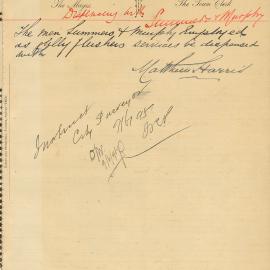 The Mayor The Town Clerk
Dispensing with Summers & Murphy
The men Summers & Murphy Employed
as Gully flushers services be dispensed
with
Matthew Harris
Instruct
City Surveyor